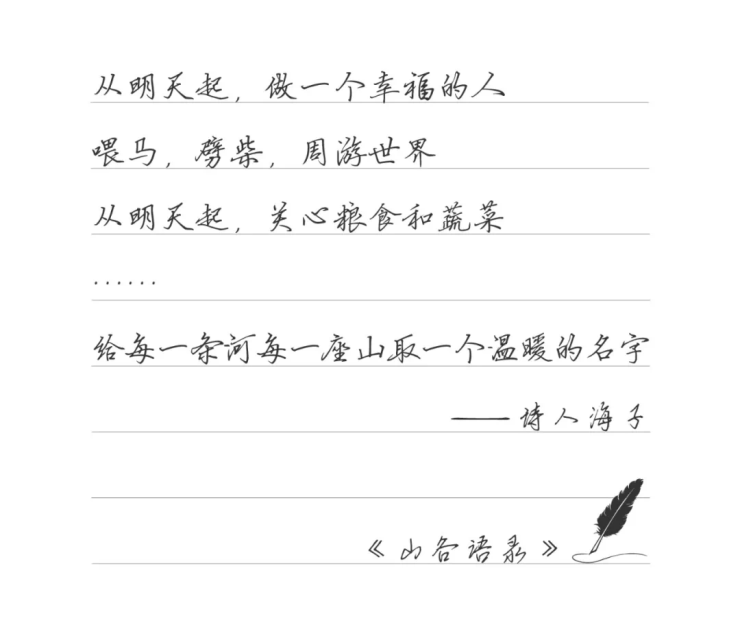 从明天起，做一个幸福的人
喂马，劈柴，周游世界
从明天起，关心粮食和蔬菜
......
给每一条河每一座山取一个温暖的名字
——诗人海子
《山谷语录》